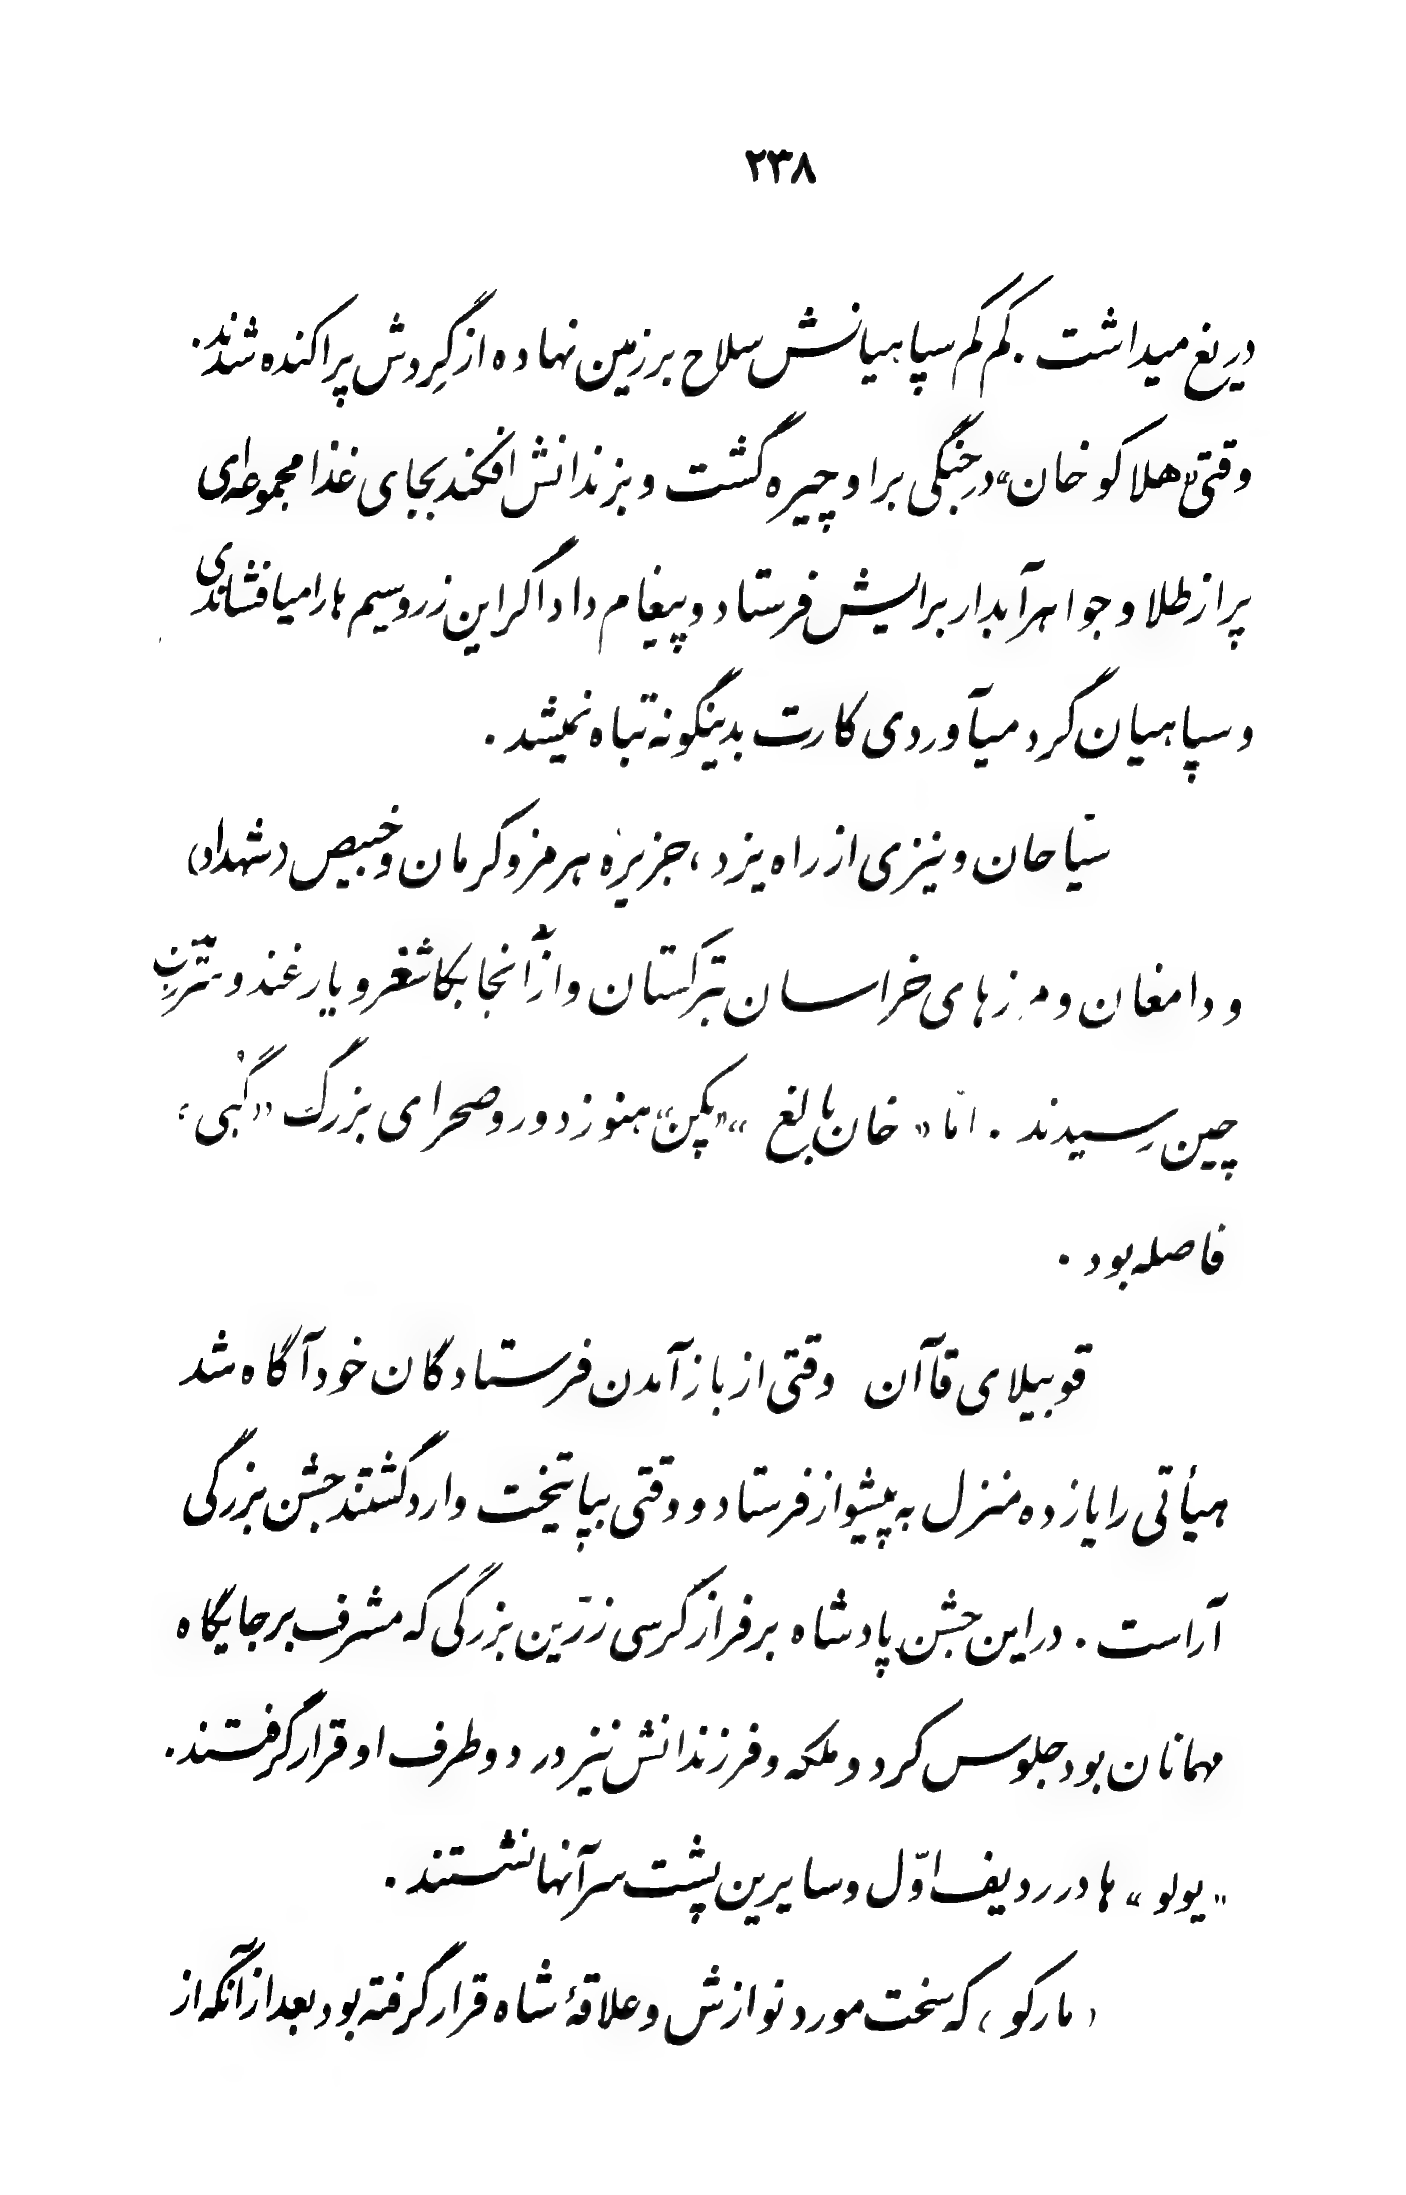 ۲۳۸
دریغ میداشت . کم کم سپاهیانش سلاح برزمین نهاده از گِردش پراکنده شدند.
وقتی «هلاکو خان» در جنگی براو چیره گشت و بزندانش افکند بجای غذا مجموعه‌ای
پر از طلا و جواهر آبدار برایش فرستاد و پیغام داد اگر این زر و سیم ها را میافشاندی
و سپاهیان گرد میآوردی کارت بدینگونه تباه نمیشد .
سیّاحان ونیزی از راه یزد ، جزیرهٔ هرمز و کرمان و خبیص (شهداد)
و دامغان و مرزهای خراسان بترکستان و از آنجا بکاشغر و یارغند و
چین رسیدند . امّا « خان بالغ » «پکن» هنوز دور و صحرای بزرگ «گبی»
فاصله بود .
قوبیلای قاآن وقتی از باز آمدن فرستادگان خود آگاه شد
هیأتی را یازده منزل به پیشواز فرستاد و وقتی بپایتخت وارد گشتند جشن بزرگی
آراست . در این جشن پادشاه بر فراز کرسی زرّین بزرگی که مشرف بر جایگاه
مهمانان بود جلوس کرد و ملکه و فرزندانش نیز در دو طرف او قرار گرفتند .
« پولو » ها در ردیف اوّل و سایرین پشت سر آنها نشستند .
( مارکو ) که سخت مورد نوازش و علاقهٔ شاه قرار گرفته بود بعد از آنکه از